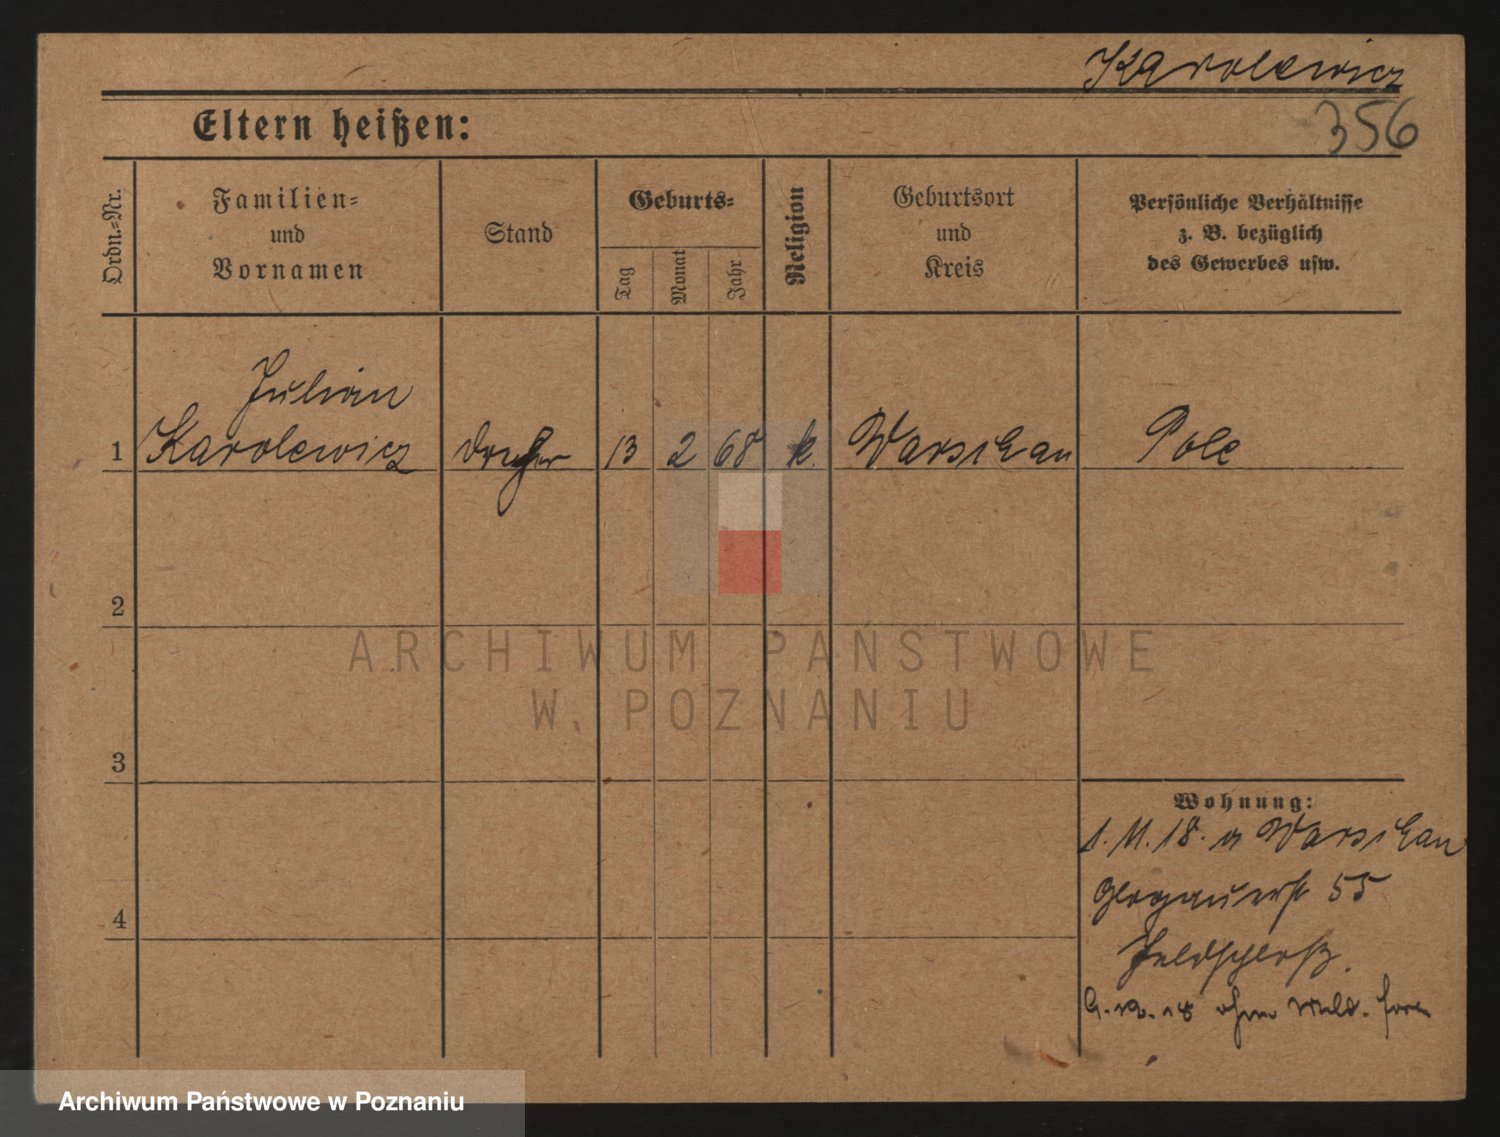 Karolewicz
356
Eltern heißen:
Ordn.-Nr.
Familien- und Vornamen
Stand
Geburts-
Tag
Monat
Jahr
Religion
Geburtsort und Kreis
Persönliche Verhältnisse
z. B. bezüglich
des Gewerbes usw.
Julian
1 Karolewicz 13 2 68 k. Warschau Pole
2
3
4
Wohnung:
1. 11. 18. Warschau
Glogauerstr 55
Feldschloß.
18 ohne Meld. fort
ARCHIWUM PAŃSTWOWE
W POZNANIU
Archiwum Państwowe w Poznaniu